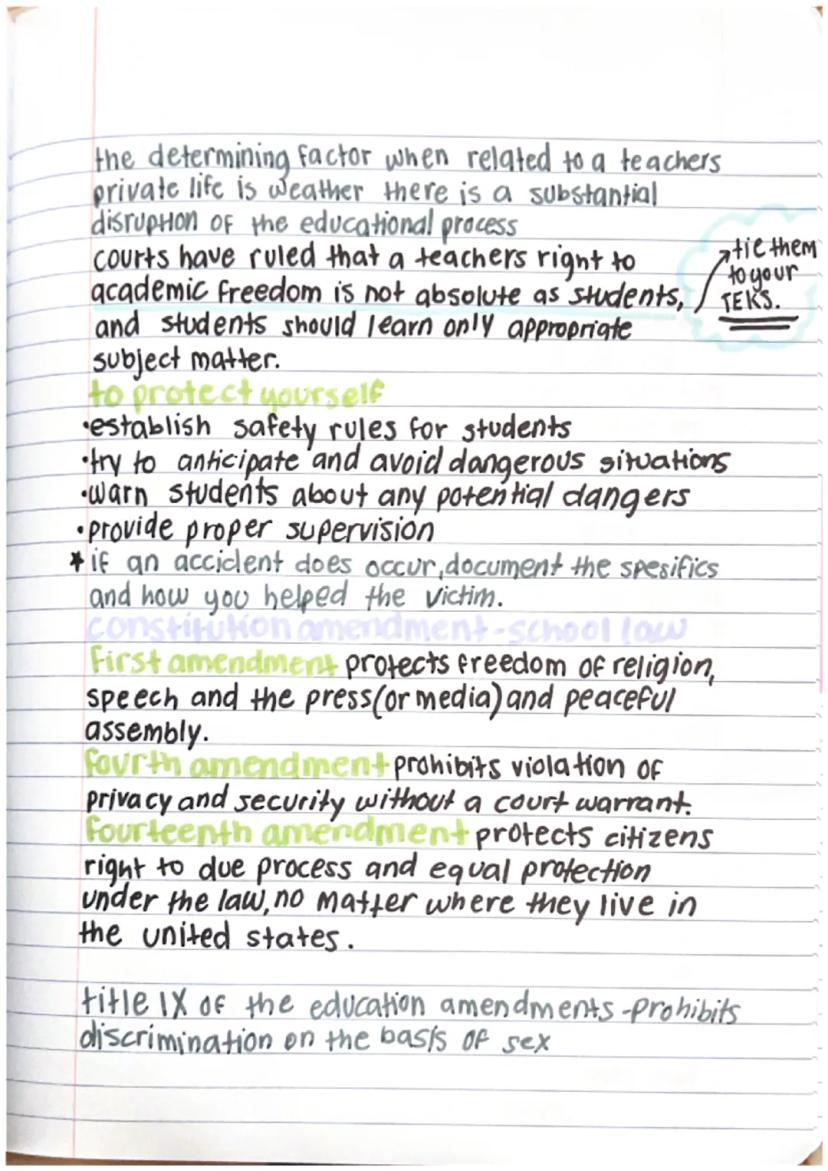 the determining factor when related to a teachers
private life is weather there is a substantial
disruption of the educational process
courts have ruled that a teachers right to
academic freedom is not absolute as students,
and students should learn only appropriate
subject matter.
tie them
to your
TEKS.
to protect yourself
•establish safety rules for students
•try to anticipate and avoid dangerous situations
•warn students about any potential dangers
•provide proper supervision
★if an accident does occur, document the spesifics
and how you helped the victim.
constitution amendment-school law
first amendment protects freedom of religion,
speech and the press (or media) and peaceful
assembly.
fourth amendment prohibits violation of
privacy and security without a court warrant.
fourteenth amendment protects citizens
right to due process and equal protection
under the law, no matter where they live in
the united states.
title IX of the education amendments-prohibits
discrimination on the basis of sex